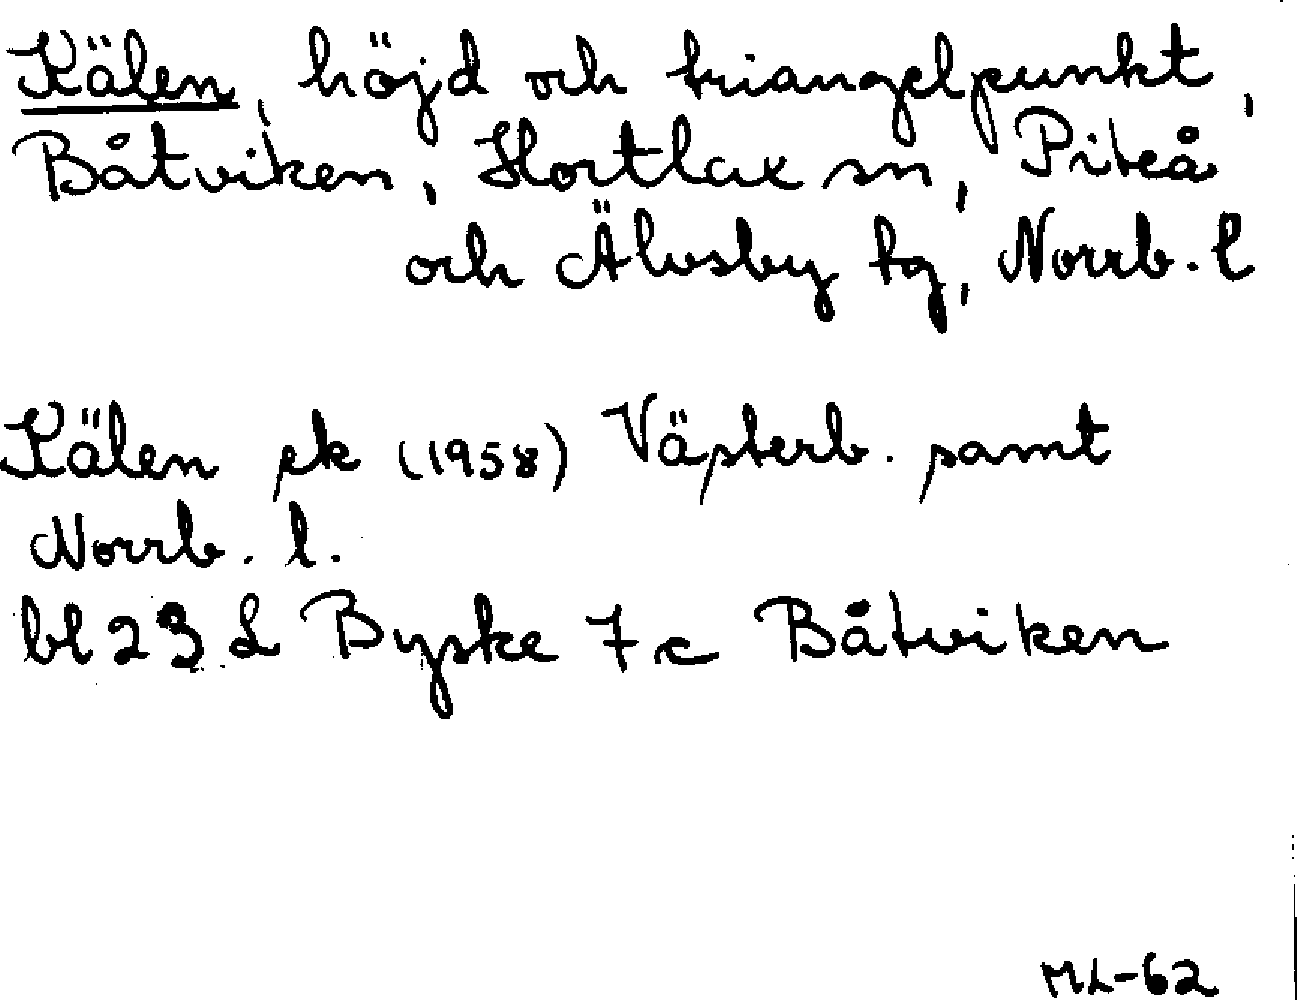 Kälen, höjd och triangelpunkt,
Båtviken, Hortlax sn, Piteå
och Älvsby tg, Norrb. l
Kälen ek (1958) Västerb. samt
Norrb. l.
bl 23 L Byske 7c Båtviken
ML-62